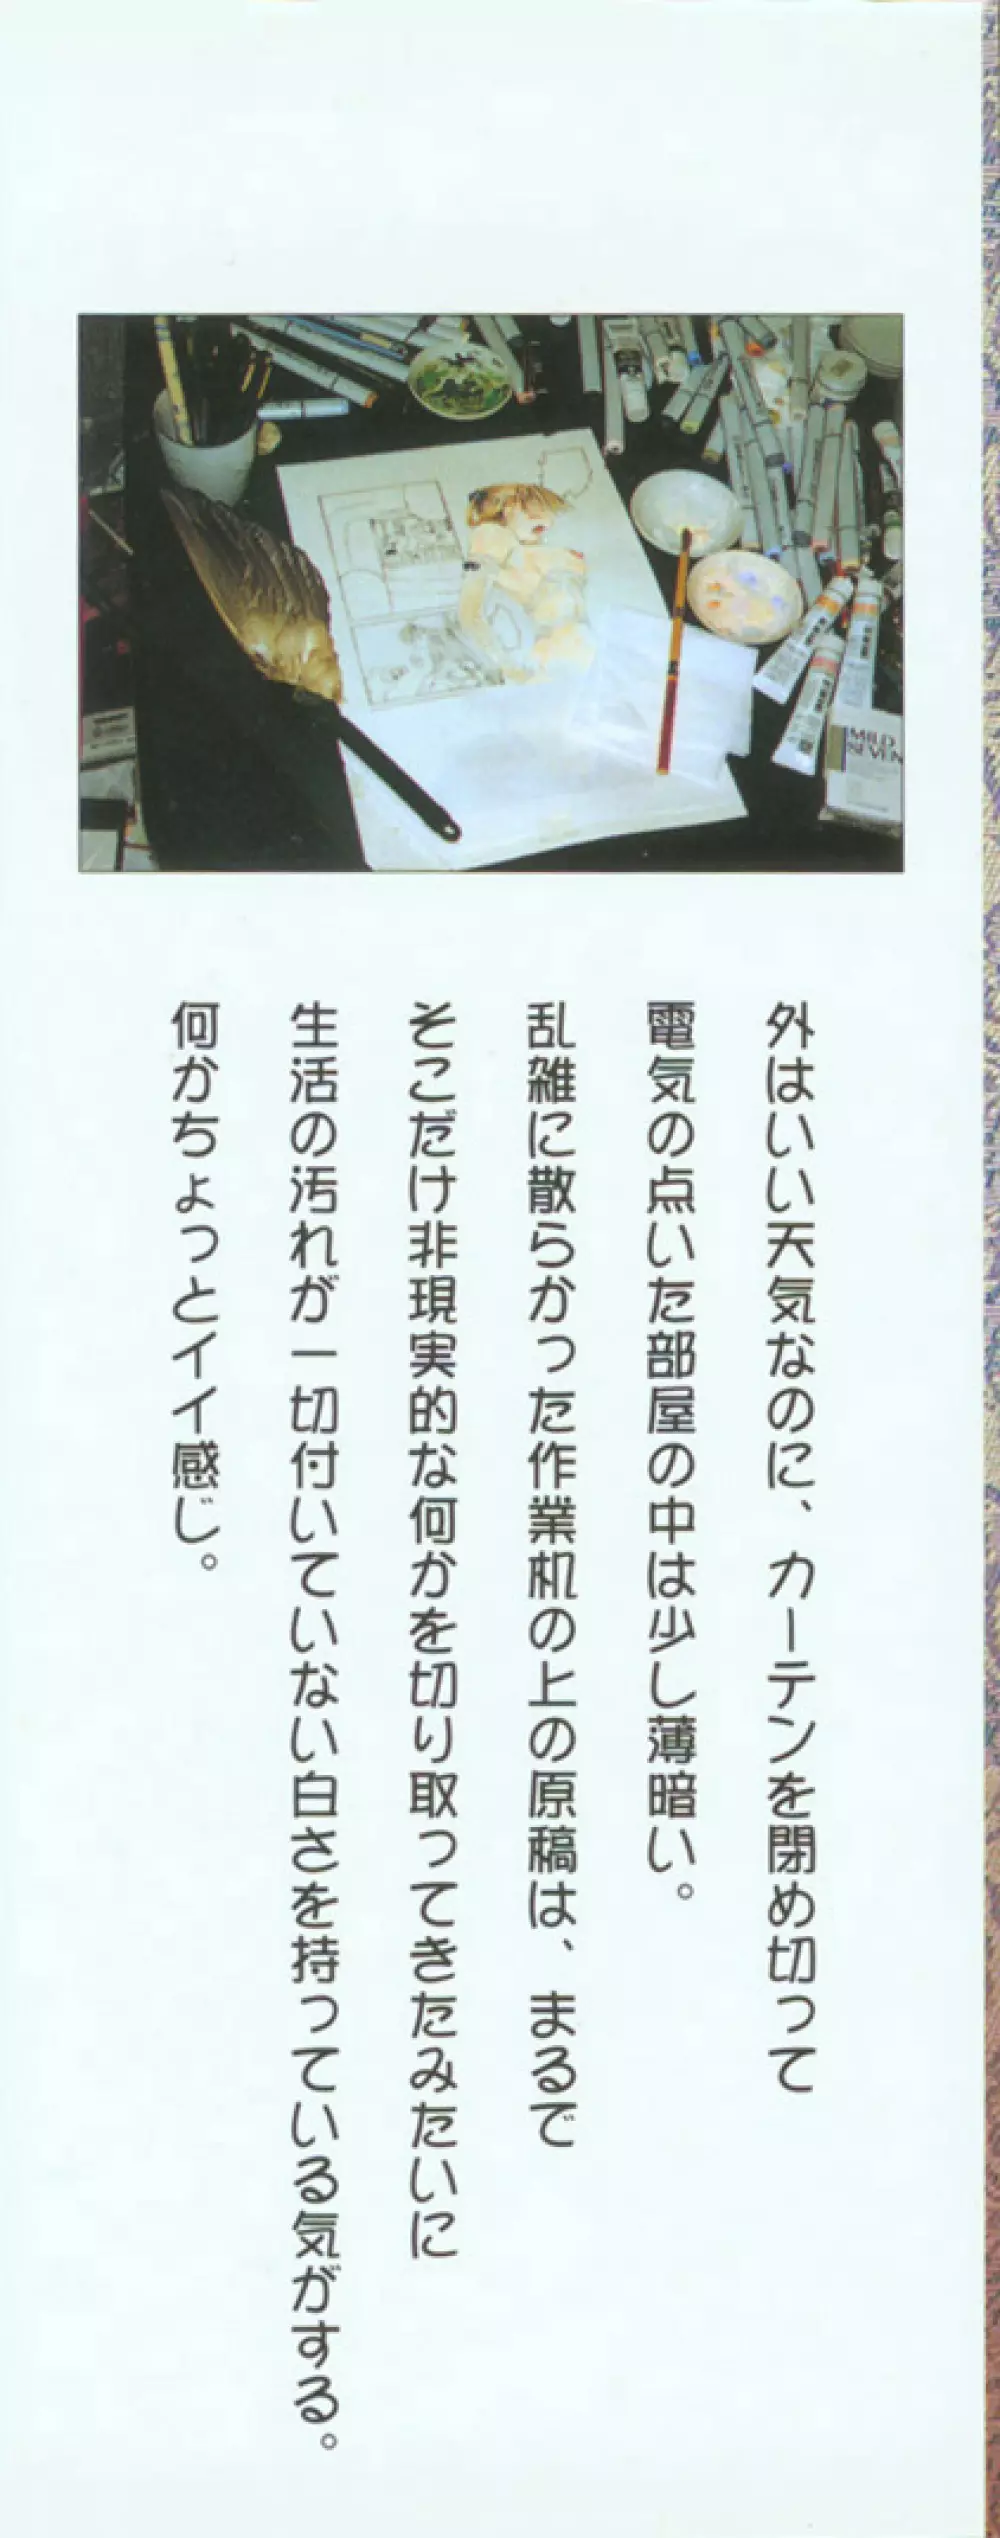 外はいい天気なのに、カーテンを閉め切って
電気の点いた部屋の中は少し薄暗い。
乱雑に散らかった作業机の上の原稿は、まるで
そこだけ非現実的な何かを切り取ってきたみたいに
生活の汚れが一切付いていない白さを持っている気がする。
何かちょっとイイ感じ。
MILD
SEVEN